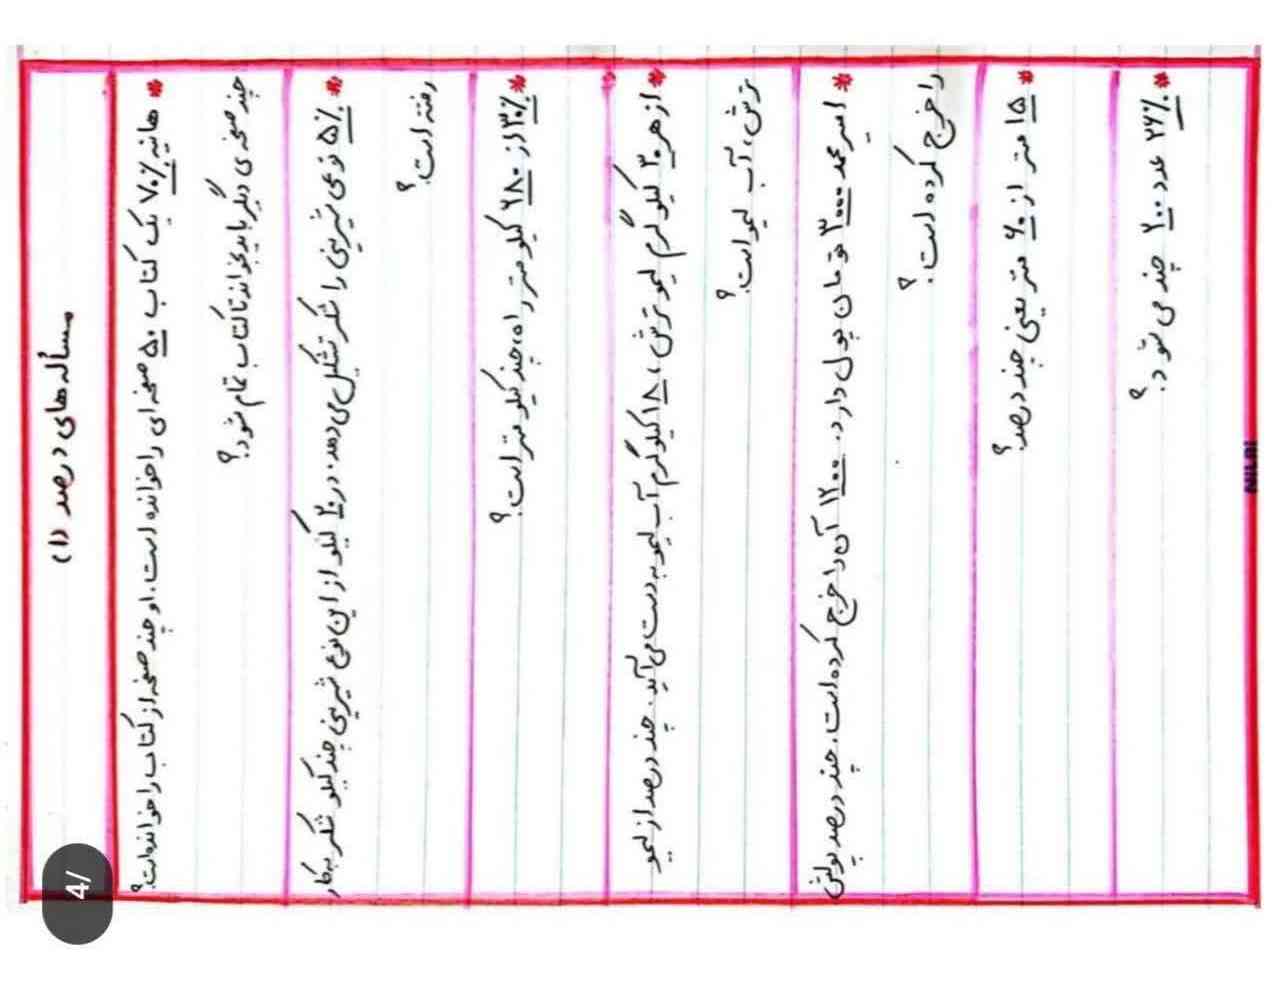 مسأله های درصد (۱)
* هانیه ۷۰٪ یک کتاب ۵۰ صفحه ای را خوانده است. او چند صفحه از کتاب را خوانده است؟
چند صفحه ی دیگر باید بخواند تا کتاب تمام شود؟
* ۵٪ نوعی شیرینی را شکر تشکیل می دهد. در ۲۰ کیلو از این نوع شیرینی چند کیلو شکر به کار
رفته است؟
* ۳۰٪ از ۶۸۰ کیلومتر راه، چند کیلومتر است؟
* از هر ۳۰ کیلوگرم لیمو ترش، ۱۸ کیلوگرم آب لیمو به دست می آید. چند درصد از لیمو
ترش، آب لیمو است؟
* امیرمحمد ۳۰۰۰ تومان پول دارد. ۱۲۰۰ آن را خرج کرده است. چند درصد پولش
را خرج کرده است؟
* ۱۵ متر از ۶۰ متر یعنی چند درصد؟
* ۲۶٪ عدد ۲۰۰ چند می شود؟
NILAI
4/